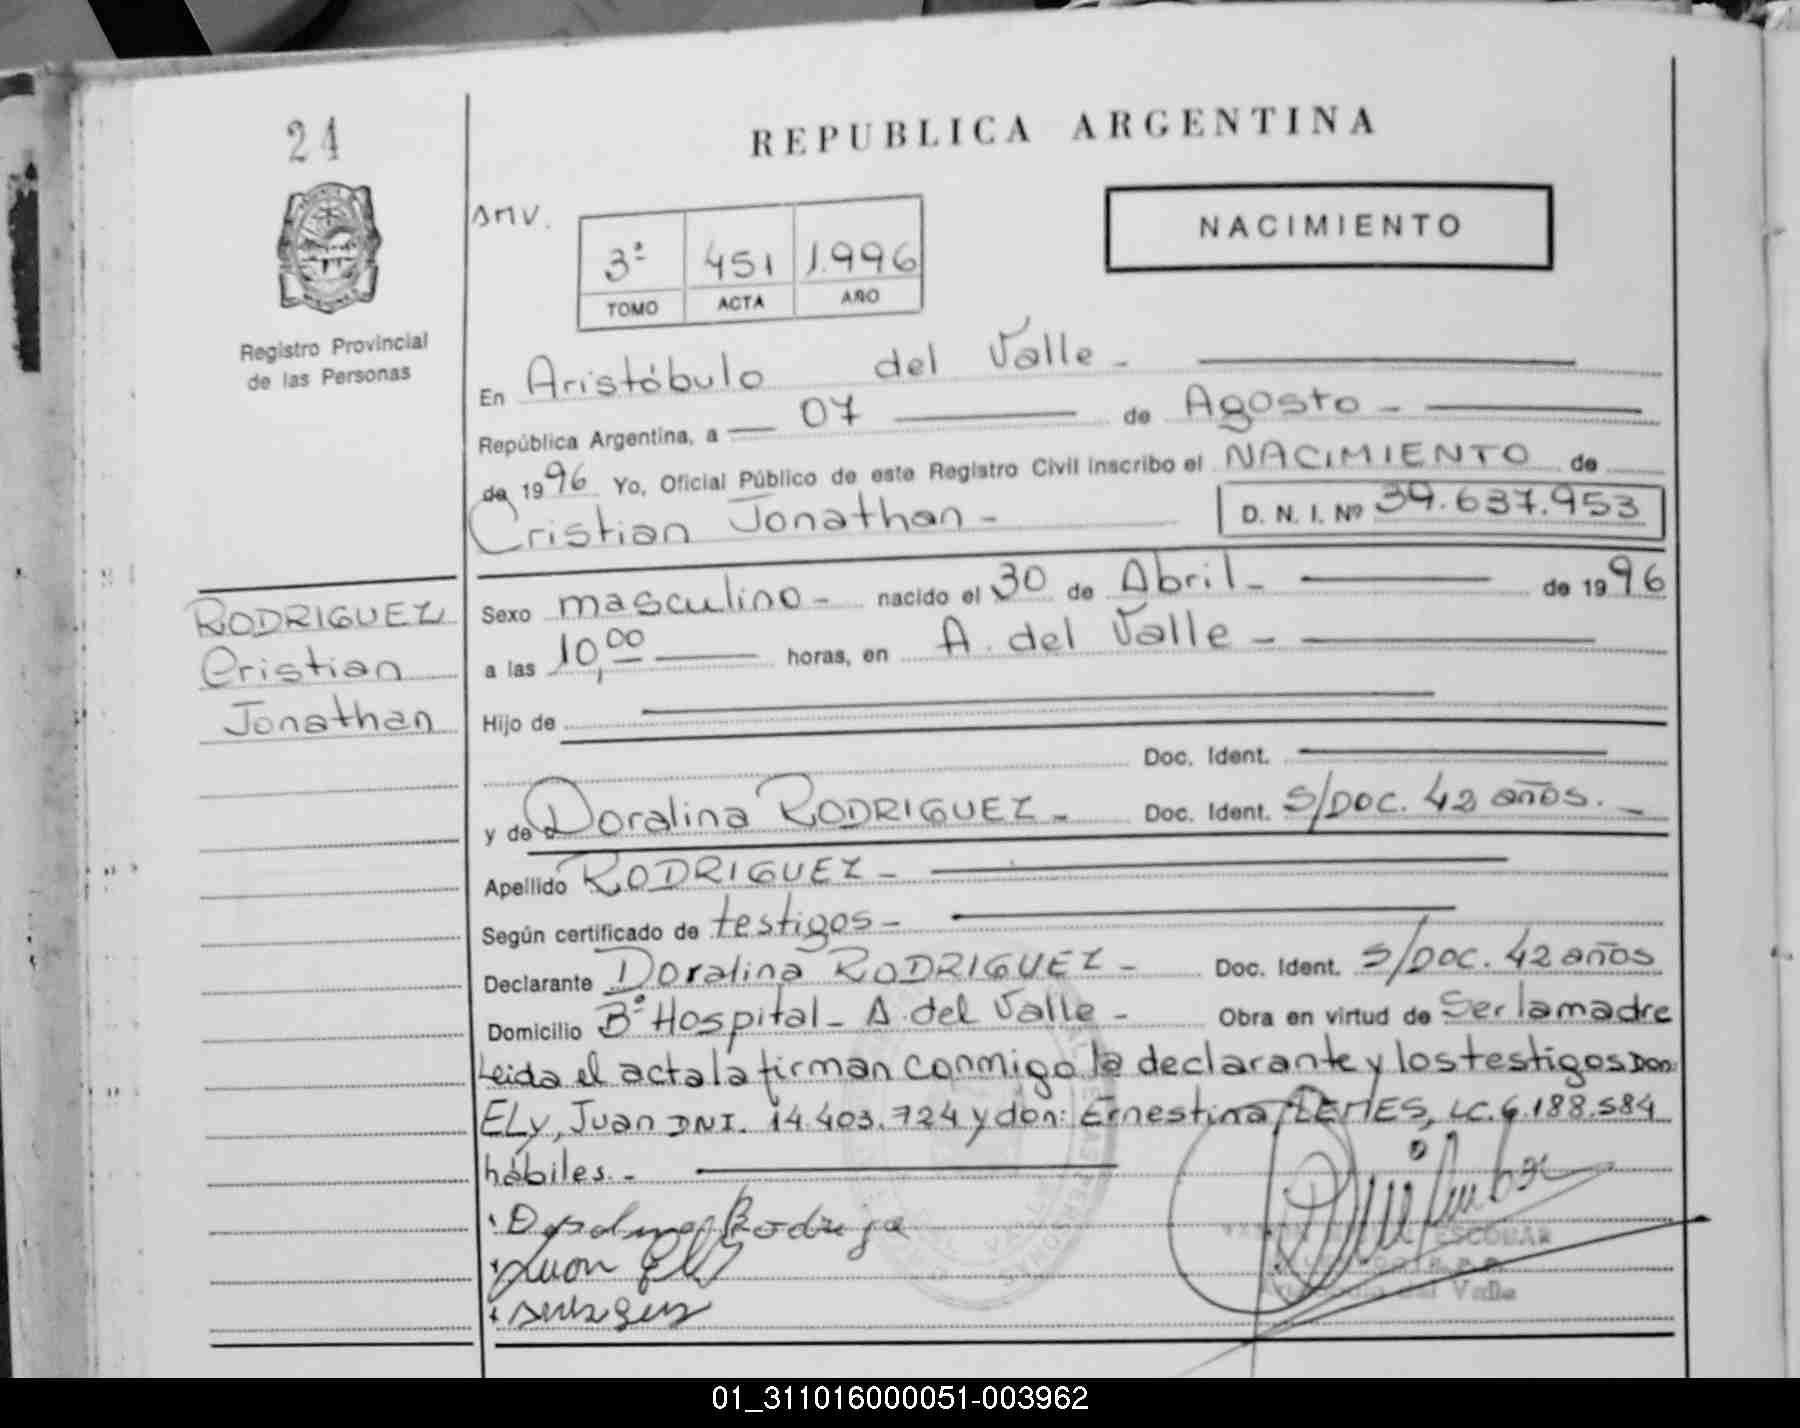 24
REPUBLICA ARGENTINA
NACIMIENTO
3º 451 1.996
TOMO ACTA AÑO
Registro Provincial
de las Personas
En Aristóbulo del Valle -
República Argentina, a 07 de Agosto -
de 1996 Yo, Oficial Público de este Registro Civil inscribo el NACIMIENTO de
Cristian Jonathan - D. N. I. Nº 39.637.953
RODRIGUEZ
Cristian
Jonathan
Sexo masculino - nacido el 30 de Abril - de 1996
a las 10,00 horas, en A. del Valle -
Hijo de
Doc. Ident.
y de Doralina RODRIGUEZ - Doc. Ident. S/DOC. 42 años. -
Apellido RODRIGUEZ -
Según certificado de testigos -
Declarante Doralina RODRIGUEZ - Doc. Ident. S/DOC. 42 años
Domicilio Bº Hospital - A. del Valle - Obra en virtud de Ser la madre
Leida el acta la firman conmigo la declarante y los testigos Don:
ELY, Juan DNI. 14.403.724 y don: Ernestina LEMES, LC. 6.188.584
hábiles. -
Juan Ely
ESCOBAR
del Valle
01_311016000051-003962